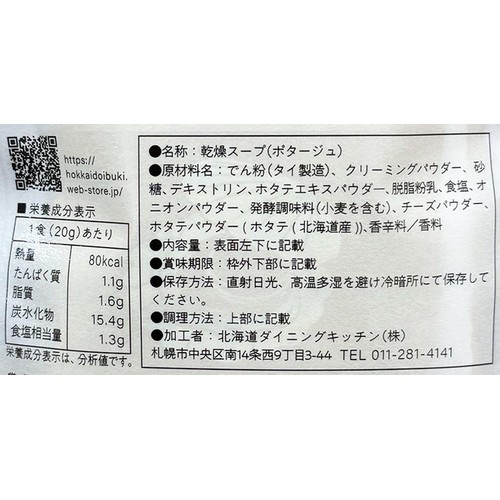 https://
hokkaidoibuki.
web-store.jp/
■栄養成分表示
1食(20g)あたり
熱量 80kcal
たんぱく質 1.1g
脂質 1.6g
炭水化物 15.4g
食塩相当量 1.3g
栄養成分表示は、分析値です。
●名称:乾燥スープ(ポタージュ)
●原材料名:でん粉(タイ製造)、クリーミングパウダー、砂
糖、デキストリン、ホタテエキスパウダー、脱脂粉乳、食塩、オ
ニオンパウダー、発酵調味料(小麦を含む)、チーズパウダー、
ホタテパウダー(ホタテ(北海道産))、香辛料/香料
●内容量:表面左下に記載
●賞味期限:枠外下部に記載
●保存方法:直射日光、高温多湿を避け冷暗所にて保存して
ください。
●調理方法:上部に記載
●加工者:北海道ダイニングキッチン(株)
札幌市中央区南14条西9丁目3-44 TEL 011-281-4141